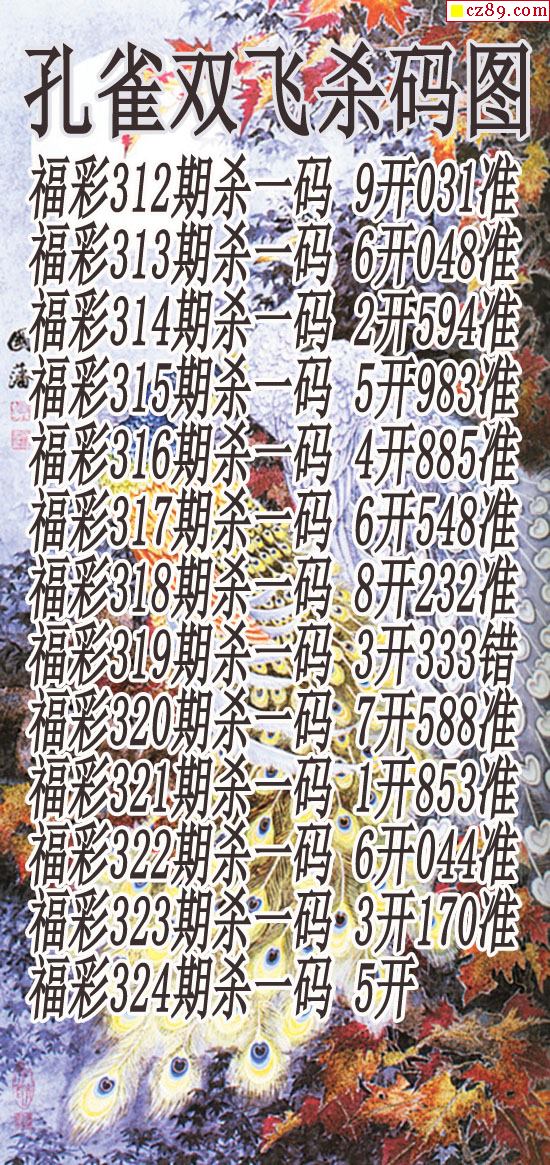 cz89.com
孔雀双飞杀码图
福彩312期杀一码 9开031准
福彩313期杀一码 6开048准
福彩314期杀一码 2开594准
福彩315期杀一码 5开983准
福彩316期杀一码 4开885准
福彩317期杀一码 6开548准
福彩318期杀一码 8开232准
福彩319期杀一码 3开333错
福彩320期杀一码 7开588准
福彩321期杀一码 1开853准
福彩322期杀一码 6开044准
福彩323期杀一码 3开170准
福彩324期杀一码 5开